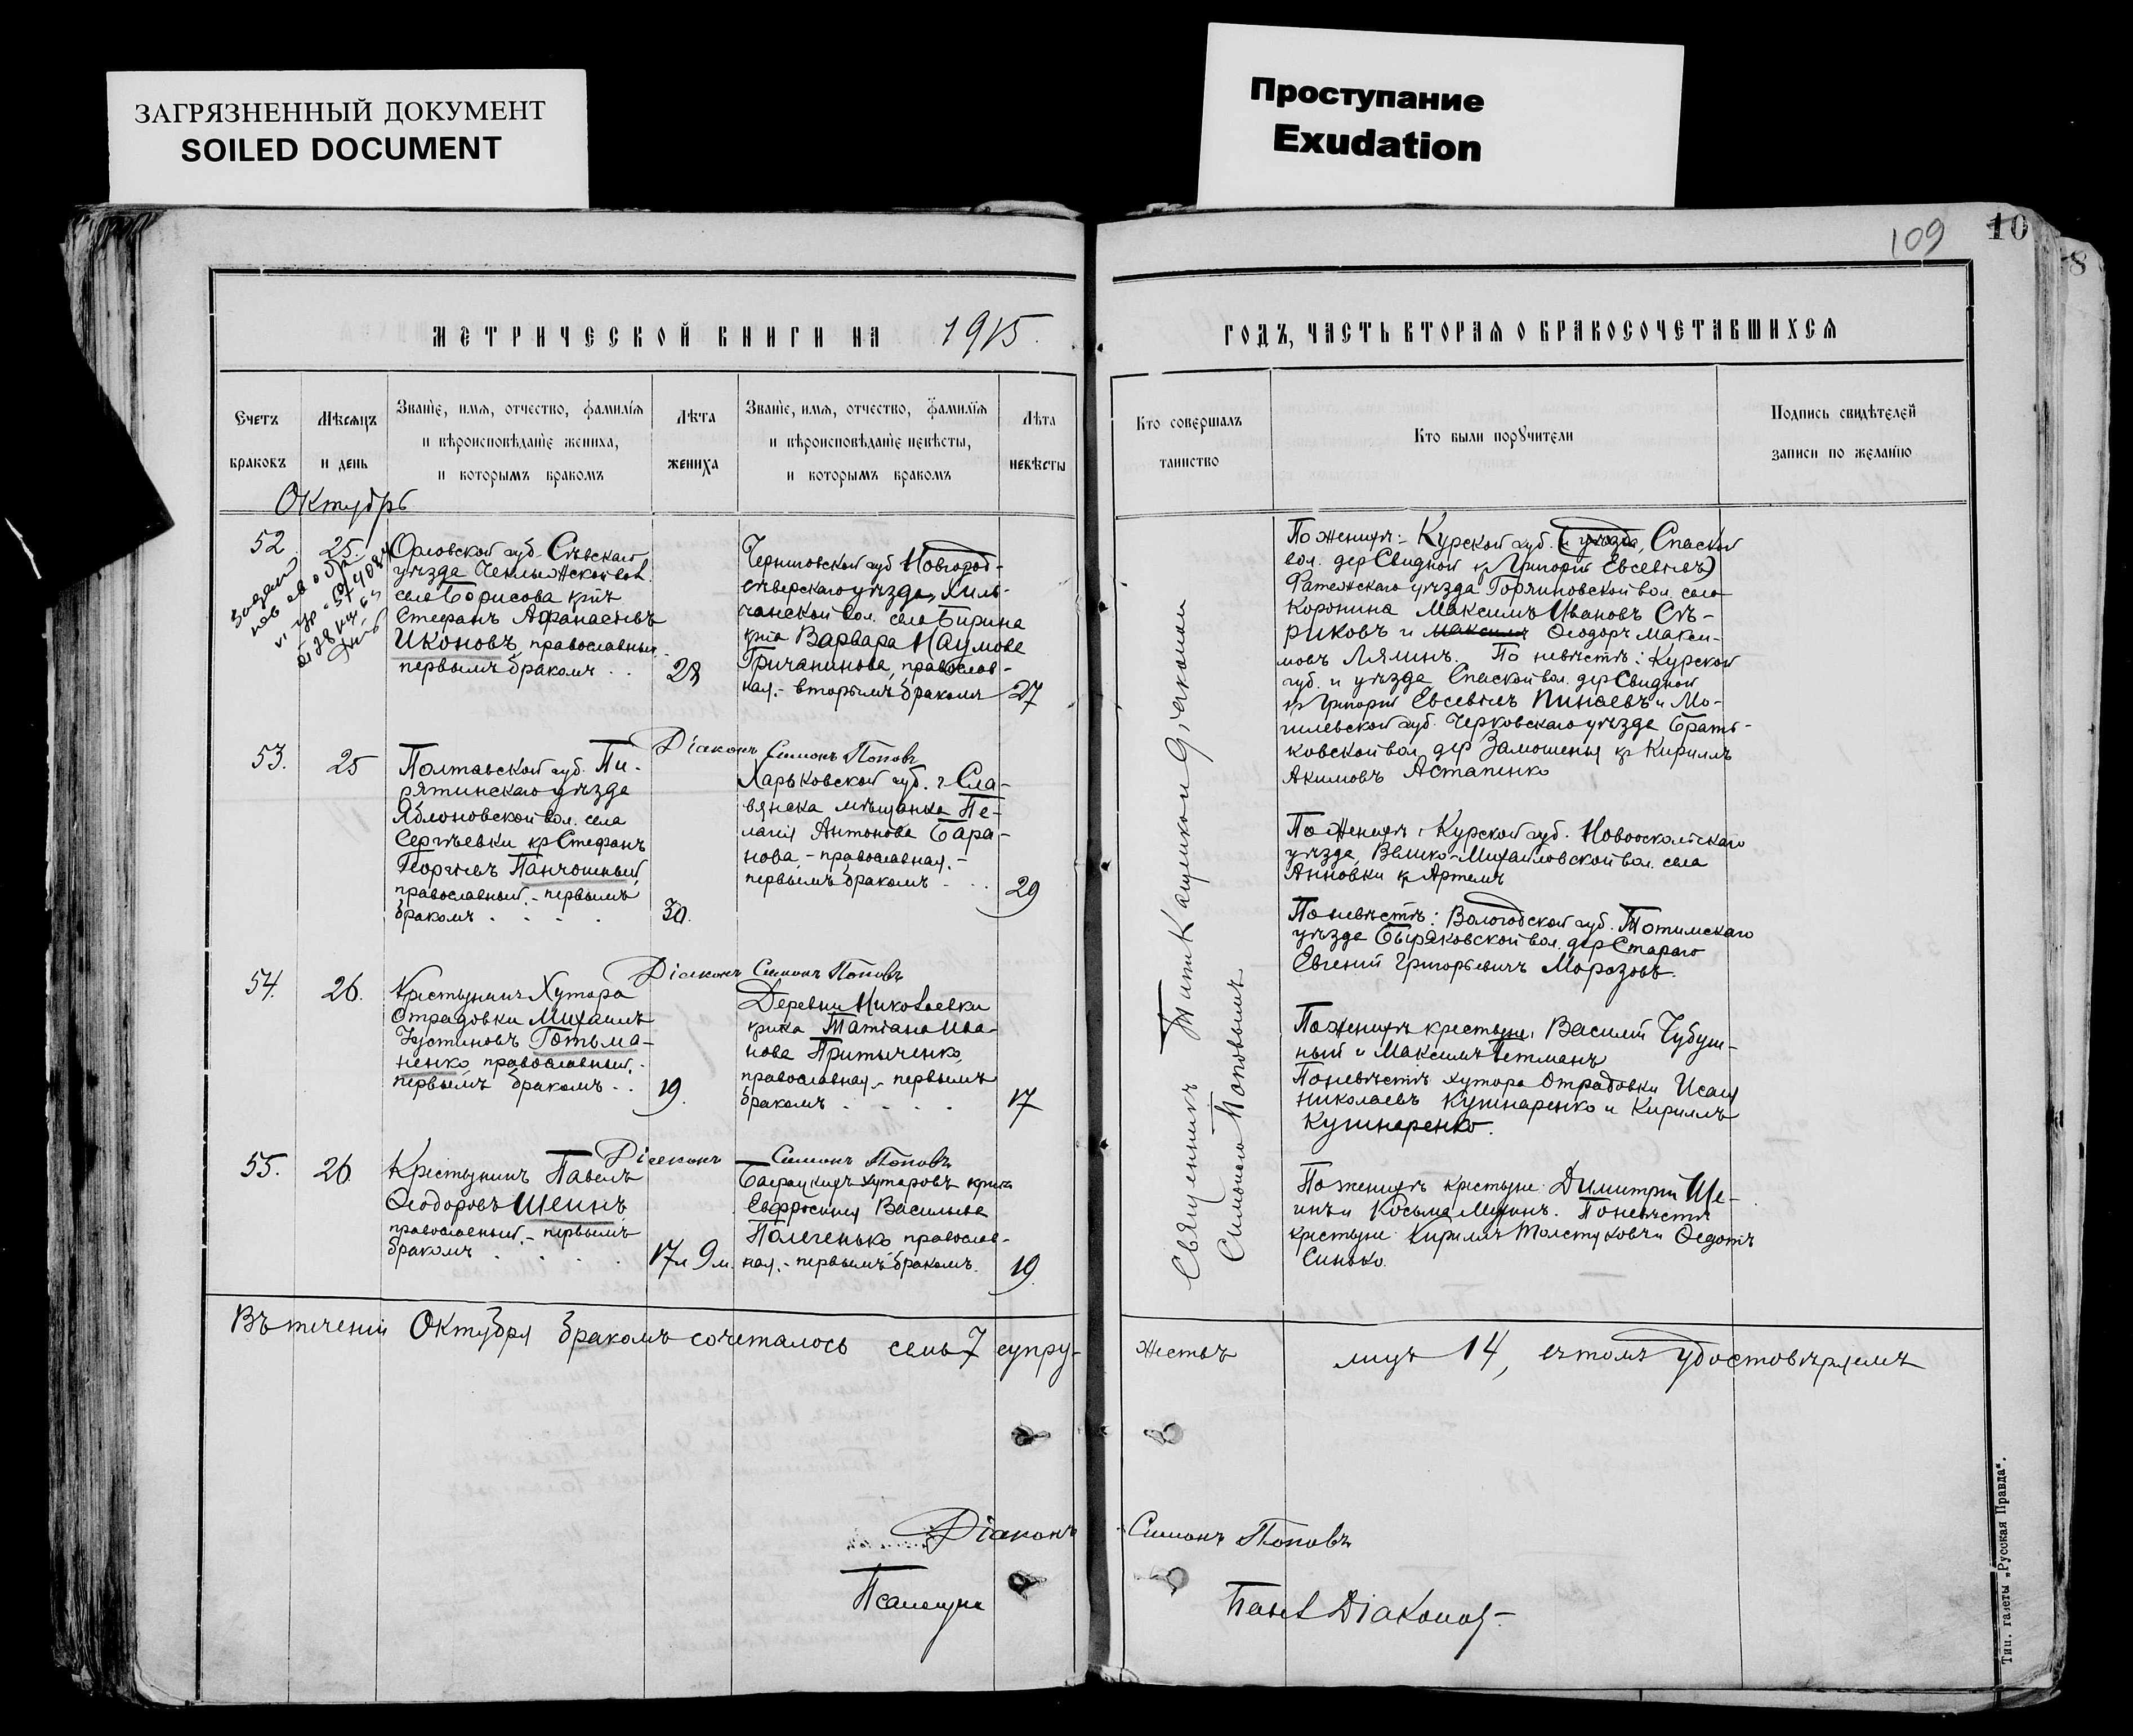 ЗАГРЯЗНЕННЫЙ ДОКУМЕНТ
SOILED DOCUMENT
Проступание
Exudation
109
10
8
МЕТРИЧЕСКОЙ КНИГИ НА 1915.
ГОДЪ, ЧАСТЬ ВТОРАЯ О БРАКОСОЧЕТАВШИХСЯ
Счетъ
браковъ
Мѣсяцъ
и день
Званіе, имя, отчество, фамилія
и вѣроисповѣданіе жениха,
и которымъ бракомъ
Лѣта
жениха
Званіе, имя, отчество, фамилія
и вѣроисповѣданіе невѣсты,
и которымъ бракомъ
Лѣта
невѣсты
Кто совершалъ
таинство
Кто были поручители
Подпись свидѣтелей
записи по желанію
Октябрь
52
25.
Орловской губ. Сѣвскаго
уѣзда вол.
села Борисова
Стефанъ Афанасьевъ
Иконовъ, православный
первымъ бракомъ . .
28
Черниговской губ Новгород-
сѣверскаго уѣзда, Хиль-
чанской вол. села Бирина
Варвара Наумова
Гричанинова, православ-
ная. - вторымъ бракомъ
27
По женихѣ: Курской губ. и уѣзда, Спаской
вол. дер Свидной кр Григорій Евсевіевъ)
Фатежскаго уѣзда вол. село
Коронина Максимъ Ивановъ Сѣ-
риковъ и Максимъ Ѳеодоръ Макси-
мовъ Лялинъ. По невѣстѣ: Курской
губ. и уѣзда Спаской вол. дер Свидной
кр Григорій Евсевіевъ Пинаевъ и Мо-
гилевской губ. Чериковскаго уѣзда Брать-
ковской вол. дер Замошенья кр Кириллъ
Акимовъ Астапенко
Діаконъ Симонъ Поповъ
53.
25
Полтавской губ. Пи-
рятинскаго уѣзда
Яблоновской вол. села
Сергѣевки кр Стефанъ
Георгіевъ Панчошный
православный. - первымъ
бракомъ . . . .
30.
Харьковской губ. г Сла-
вянска мѣщанка Пе-
лагія Антонова Бара-
нова, - православная. -
первымъ бракомъ . . .
29
По женихѣ: Курской губ. Новооскольскаго
уѣзда, Велико-Михайловской вол. села
Анновки кр Артемъ
По невѣстѣ: Вологодской губ. Тотимскаго
уѣзда Быряковской вол. дер Стараго
Евгений Григорьевичъ Морозовъ.
Діаконъ Симонъ Поповъ
54.
26.
Крестьянинъ Хутора
Отрадовки Михаилъ
Устиновъ Готьма-
ненко, православный. -
первымъ бракомъ . .
19.
Деревни Николаевки
Татіана Ива-
нова Притыченко,
православная. - первымъ
бракомъ . . . .
17
По женихѣ крестьяне: Василій Чубуш-
ный и Максимъ Гетманъ
По невѣстѣ хутора Отрадовки Исаія
Николаевъ Кушнаренко и Кириллъ
Кушнаренко.
Діаконъ Симонъ Поповъ
55.
26.
Крестьянинъ Павелъ
Ѳеодоровъ Шеинъ
православный. - первымъ
бракомъ . . . .
17 л 9 м.
хуторовъ
Евфросинія Васильева
Полегенько православ-
ная. - первымъ бракомъ.
19.
По женихѣ крестьяне Димитрій Ше-
инъ и Косьма Мухинъ. По невѣстѣ
крестьяне Кириллъ Толстяковъ и Ѳедотъ
Синько.
Священникъ Титъ Кащенко и діакономъ
Симономъ Поповымъ
Въ теченіи Октября бракомъ сочеталось семь 7 супру-
жествъ лицъ 14, въ томъ удостовѣряемъ
Діаконъ Симонъ Поповъ
Псаломщикъ Діаконов
Тип. газеты „Русская Правда“.